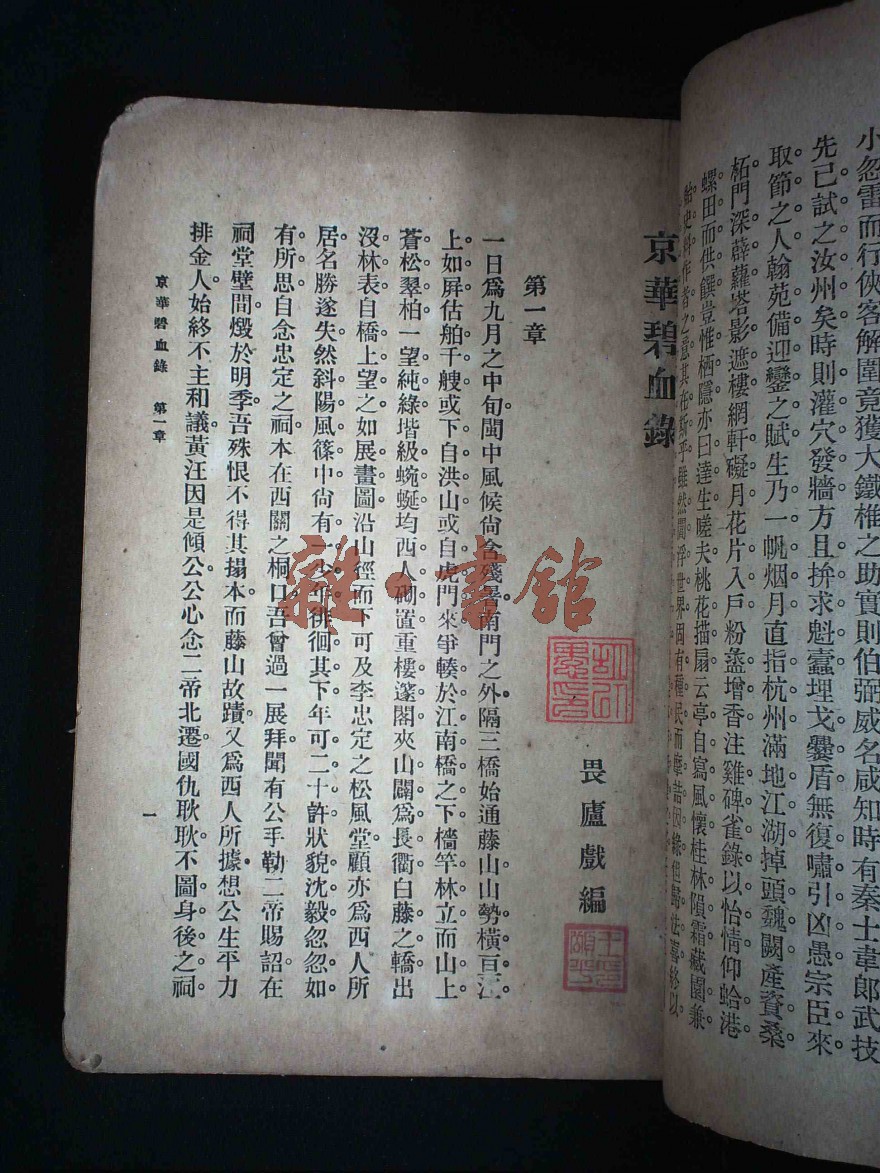 小忽雷而行俠客解圍竟獲大鐵椎之助實則伯弼威名咸知時有秦士韋郎武技
先已試之汝州矣時則灌穴發牆方且拚求魁蠹埋戈爨盾無復嘯引凶愚宗臣來
取節之人翰苑備迎鑾之賦生乃一帆烟月直指杭州滿地江湖掉頭魏闕產資桑
柘門深薜蘿塔影遮樓網軒礙月花片入戶粉蠡增香注雞碑雀錄以怡情仰蛤港
螺田而供饌豈惟栖隱亦曰達生嗟夫桃花描扇云亭自寫風懷桂林隕霜藏園兼
史料作者之意其在斯乎雖然閻浮世界因有種民而摩詰因緣但歸法喜終以
京華碧血錄
畏廬戲編
第一章
一日爲九月之中旬閩中風候尙含殘暑南門之外隔三橋始通藤山山勢橫亘江
上如屏估舶千艘或下自洪山或自虎門來爭輳於江南橋之下檣竿林立而山上
蒼松翠柏一望純綠堦級蜿蜒均西人砌置重樓邃閣夾山闢爲長衢白藤之轎出
沒林表自橋上望之如展畫圖沿山徑而下可及李忠定之松風堂顧亦爲西人所
居名勝遂失然斜陽風篠中尙有一少年徘徊其下年可二十許狀貌沈毅忽忽如
有所思自念忠定之祠本在西關之桐口吾曾過一展拜聞有公手勒二帝賜詔在
祠堂壁間燬於明季吾殊恨不得其搨本而藤山故蹟又爲西人所據想公生平力
排金人始終不主和議黃汪因是傾公公心念二帝北遷國仇耿耿不圖身後之祠
京華碧血錄 第一章
一
雜·書館